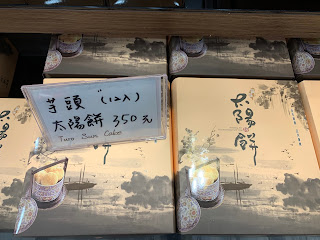 芋頭 (12入)
太陽餅 350元
Taro Sun Cake
太陽餅